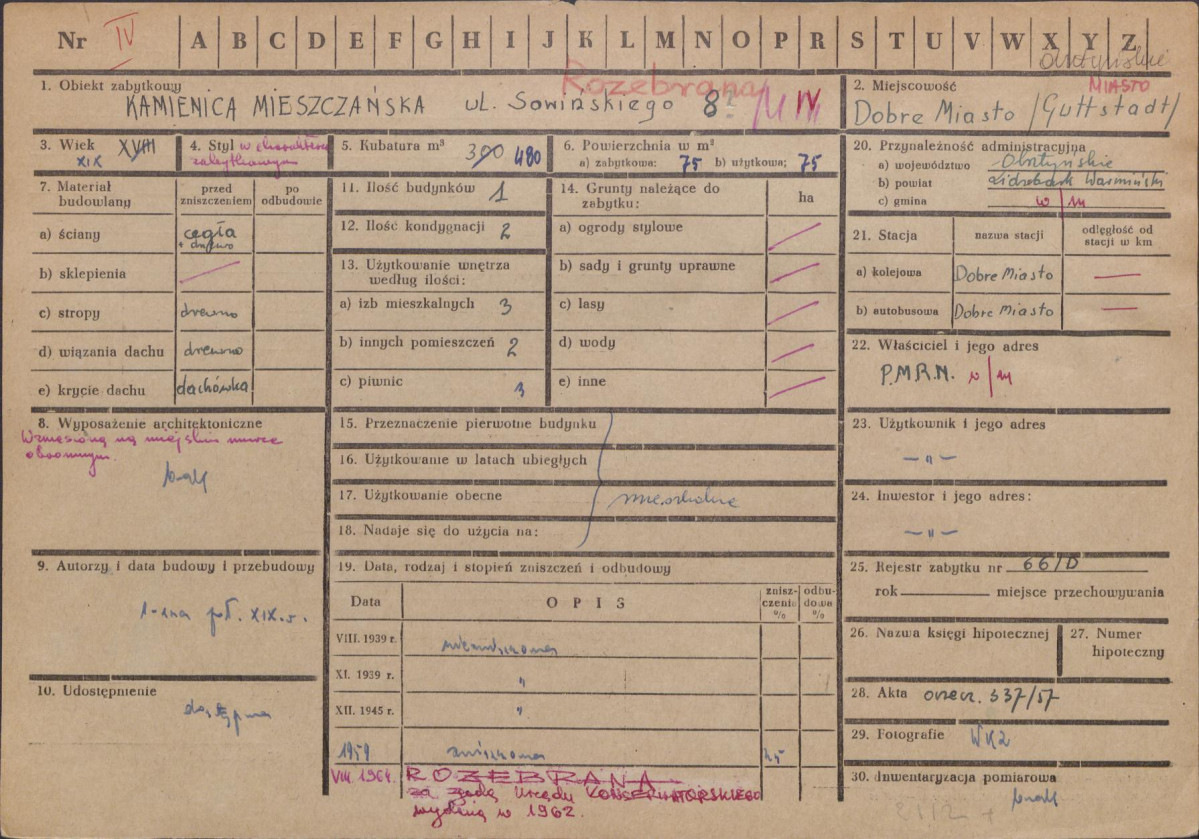 Nr IV A B C D E F G H I J K L M N O P R S T U V W X Y Z
olsztyńskie
Rozebrana
MIASTO
1. Obiekt zabytkowy
KAMIENICA MIESZCZAŃSKA ul. Sowińskiego 8? IV
2. Miejscowość
Dobre Miasto /Guttstadt/
3. Wiek XVIII
XIX
4. Styl w charakterze
zabytkowym
5. Kubatura m³ 300 480
6. Powierzchnia w m²
a) zabytkowa: 75 b) użytkowa; 75
7. Materiał
budowlany
przed
zniszczeniem
po
odbudowie
a) ściany cegła
+ drewno
b) sklepienia
c) stropy drewno
d) wiązania dachu drewno
e) krycie dachu dachówka
8. Wyposażenie architektoniczne
Wzniesiona na miejskim murze
obronnym.
brak
9. Autorzy i data budowy i przebudowy
1-sza poł. XIX. s.
10. Udostępnienie
dostępna
11. Ilość budynków 1
12. Ilość kondygnacji 2
13. Użytkowanie wnętrza
według ilości:
a) izb mieszkalnych 3
b) innych pomieszczeń 2
c) piwnic 3
14. Grunty należące do
zabytku:
ha
a) ogrody stylowe
b) sady i grunty uprawne
c) lasy
d) wody
e) inne
15. Przeznaczenie pierwotne budynku
16. Użytkowanie w latach ubiegłych
17. Użytkowanie obecne mieszkalne
18. Nadaje się do użycia na:
19. Data, rodzaj i stopień zniszczeń i odbudowy
Data
OPIS
znisz-
czenie
%
odbu-
dowa
%
VIII. 1939 r. niezniszczona
XI. 1939 r. "
XII. 1945 r. "
1959 zniszczona 45
VIII. 1964. ROZEBRANA
za zgodą Urzędu KONSERWATORSKIEGO
wydaną w 1962.
20. Przynależność administracyjna
a) województwo Olsztyńskie
b) powiat Lidzbark Warmiński
c) gmina w/m
21. Stacja
nazwa stacji
odległość od
stacji w km
a) kolejowa Dobre Miasto —
b) autobusowa Dobre Miasto —
22. Właściciel i jego adres
P.M.R.N. w/m
23. Użytkownik i jego adres
— " —
24. Inwestor i jego adres:
— " —
25. Rejestr zabytku nr 66/D
rok miejsce przechowywania
26. Nazwa księgi hipotecznej
27. Numer
hipoteczny
28. Akta orzecz. 337/57
29. Fotografie WKZ
30. Inwentaryzacja pomiarowa
brak